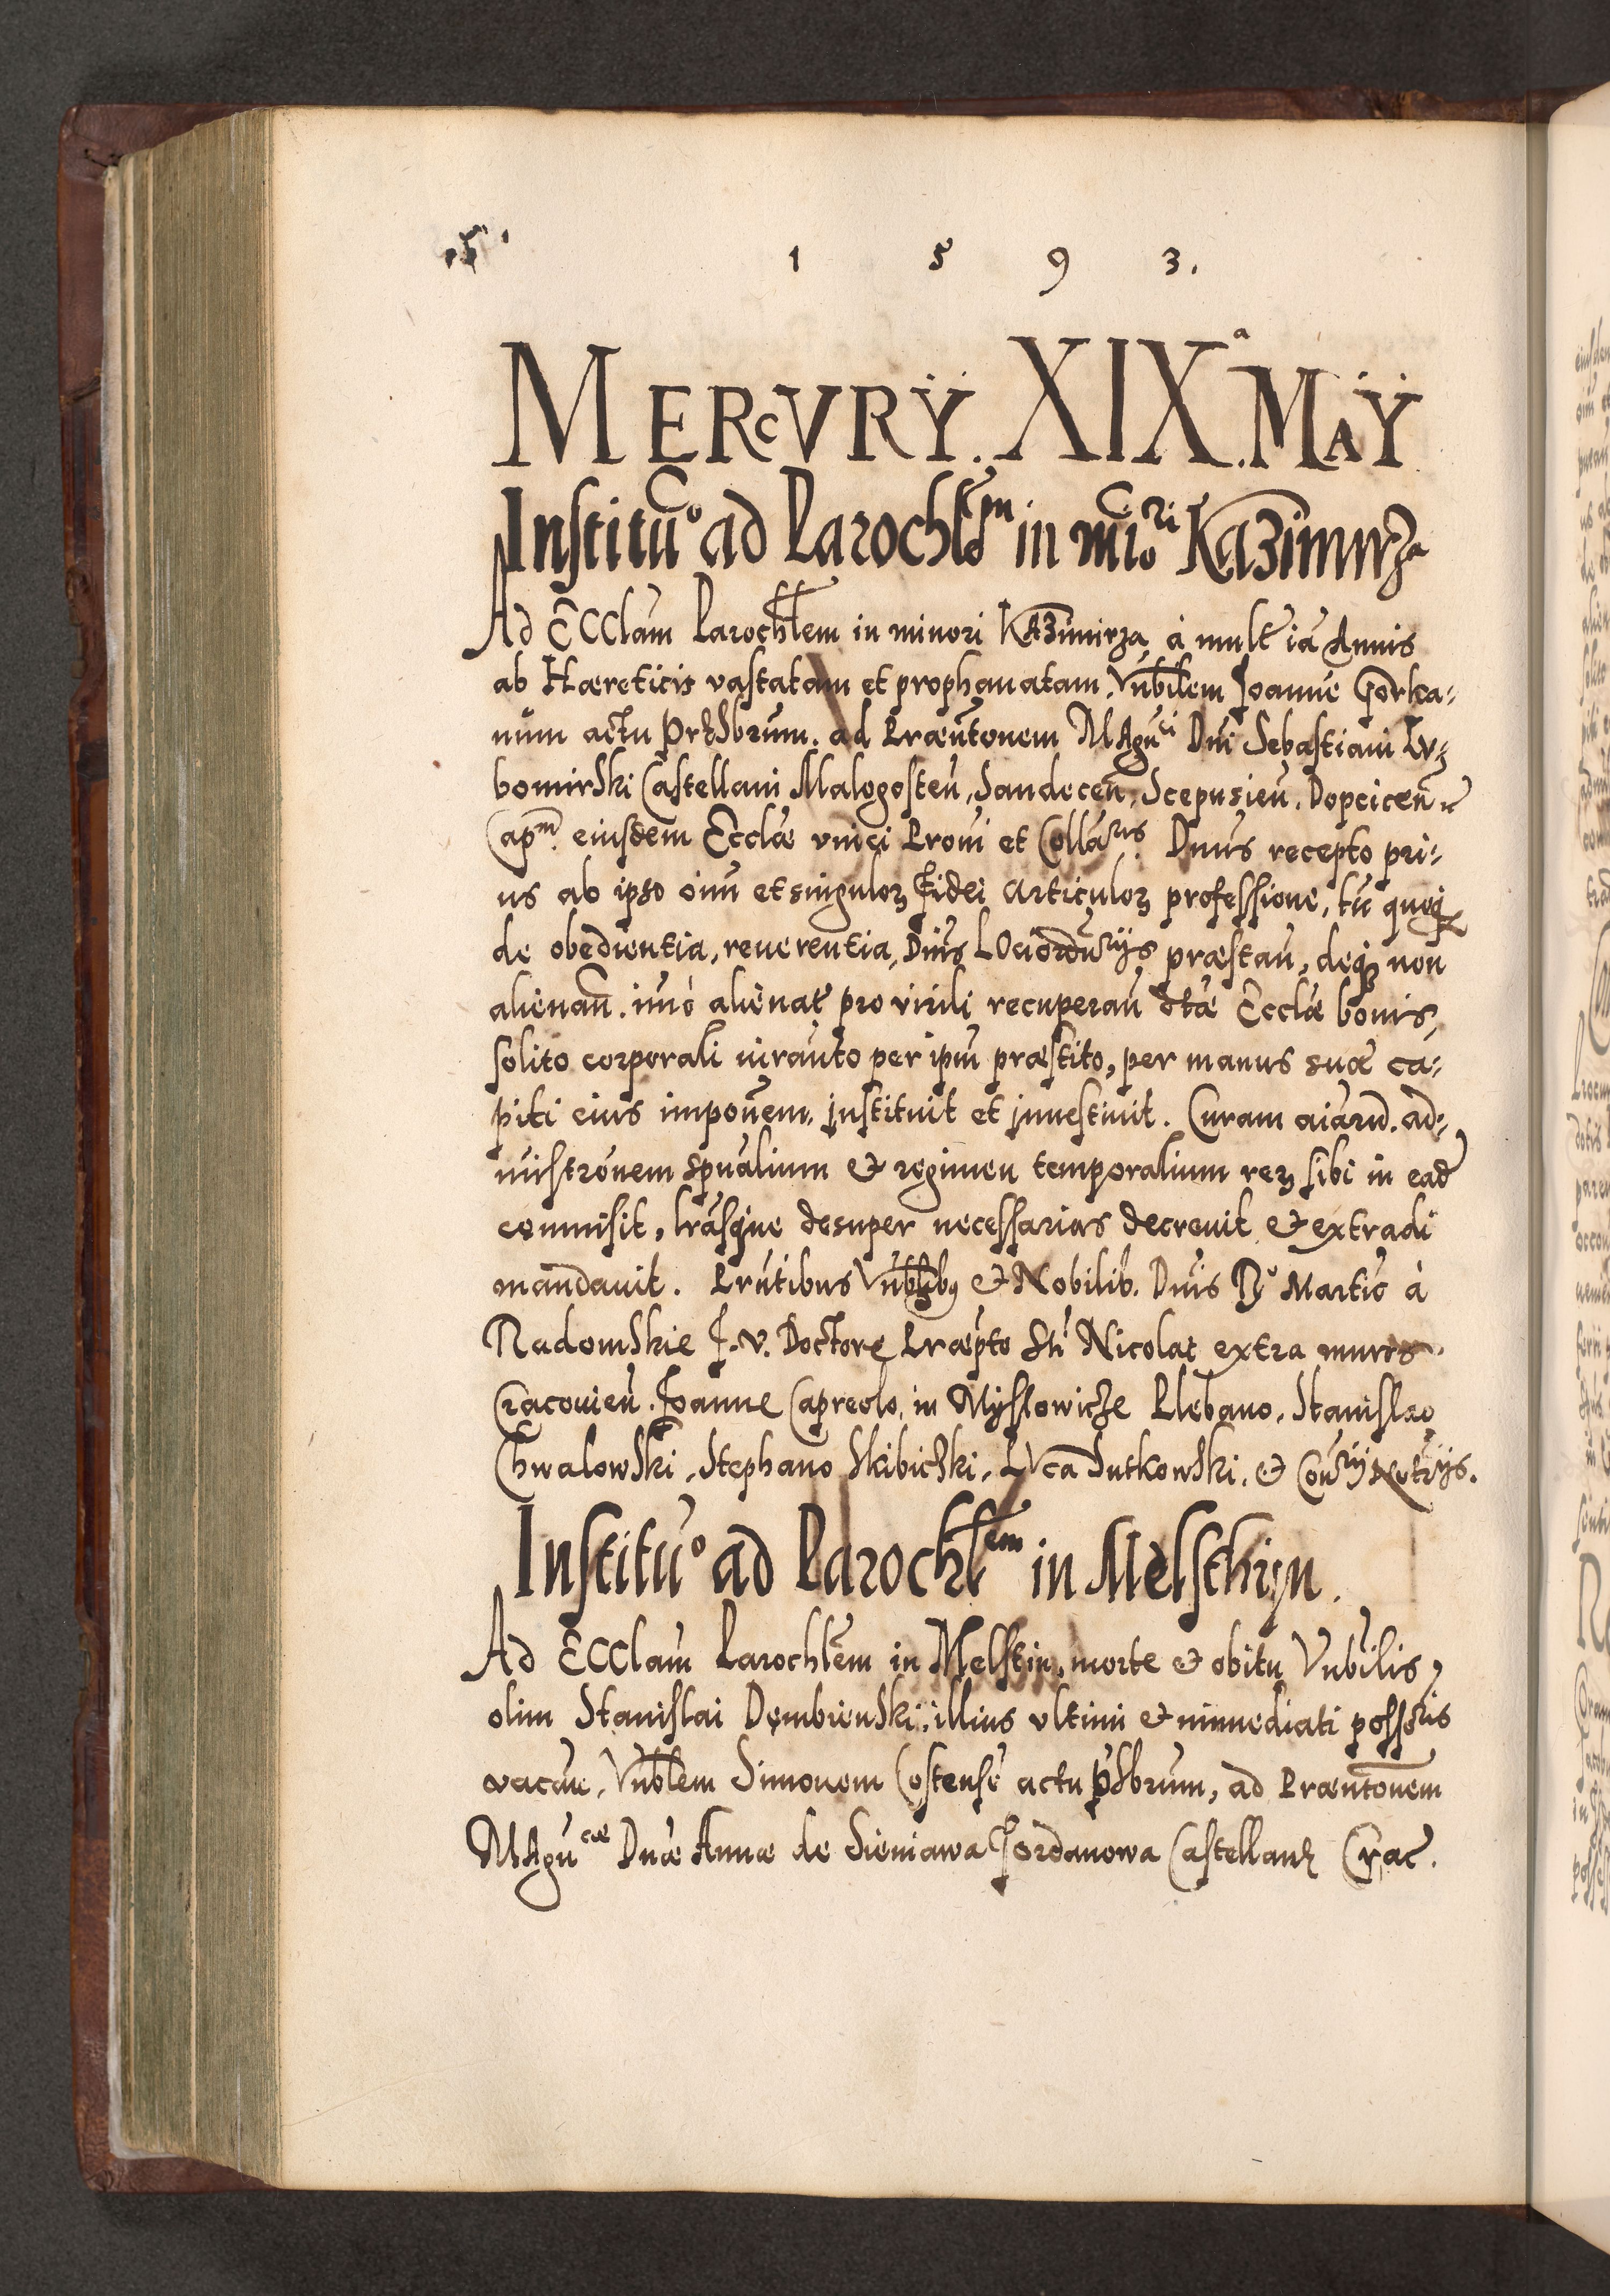 1 5 9 3.
MERCVRÿ. XIXᵃ. MAÿ
Institu͠o ad Parochl͠em in mi͠ori Kazimirza
Ad Eccl͠am Parochl͠em in minori Kazimirza, à mult͠ iã Annis
ab Hæreticis vastatam et prophanatam. Vn͠bilem Joanne Gorka-
num actu Pr͠sbrum. ad Præn͠tonem Magn͠ci Dn͠i Sebastiani Lu-
bomirski Castellani Malogosten͠, Sandecen͠, Scepusien͠. Dopcicen͠
Cap͠m. eiusdem Eccl͠æ vnici P͠roni et Colla͠ris. Dn͠us recepto pri-
us ab ipso o͠ium et singuloꝝ Fidei articuloꝝ professione, tũ quoqꝫ
de obedientia, reuerentia, Dn͠is LOciord͠nrijs præstan͠, deqꝫ non
alienan͠. im͠o alienat͠ pro virili recuperan͠ dt͠æ Eccl͠æ bonis,
solito corporali iura͠nto per ip͠m præstito, per manus suæ ca-
piti eius impo͠nem. jnstituit et jnuestiuit. Curam ai͠arũ. ad-
mi͠stro͠nem sp͠ualium & regimen temporalium reꝝ sibi in ead͠
commisit, lr͠asque desuper necessarias decreuit & extradi
mandauit. Pr͠ntibus Vn͠blibꝫ & Nobilib. Dn͠is Martio à
Radomskie J. V. Doctore Præp͠to S͠ti Nicolai extra muros
Cracouien͠. Joanne Capreolo, in Myslowicze Plebano, Stanislao
Chwalowski, Stephano Skibiczki, LVca Sutkowski. & Con͠rij Not͠rijs.
Institu͠o ad Parochl͠em in Melschtijn.
Ad Eccl͠am Parochl͠em in Melstin, morte & obitu Vn͠bilis,
olim Stanislai Dembienski: illius vltimi & immediati posso͠ris
vacan͠. Vn͠blem Simonem Costensẽ actu p͠sbrum, ad Præn͠tonem
Magn͠cæ Dn͠æ Annæ de Sieniawa Jordanowa Castellanæ Crac͠.